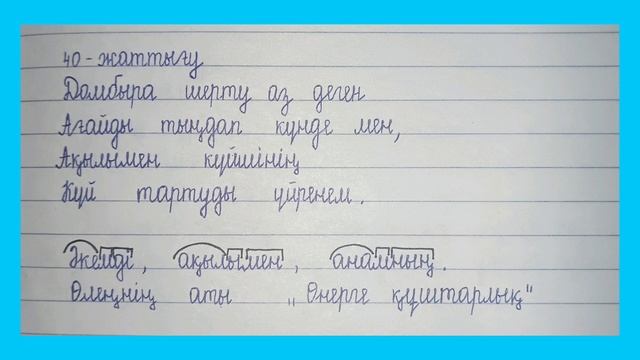 40-жаттығу
Домбыра шерту аз деген
Ағайды тыңдап күнде мен,
Ақылымен күйшінің
Күй тартуды үйренем.
Әкемді, ақылымен, анамның.
Өлеңнің аты „Өнерге құштарлық"